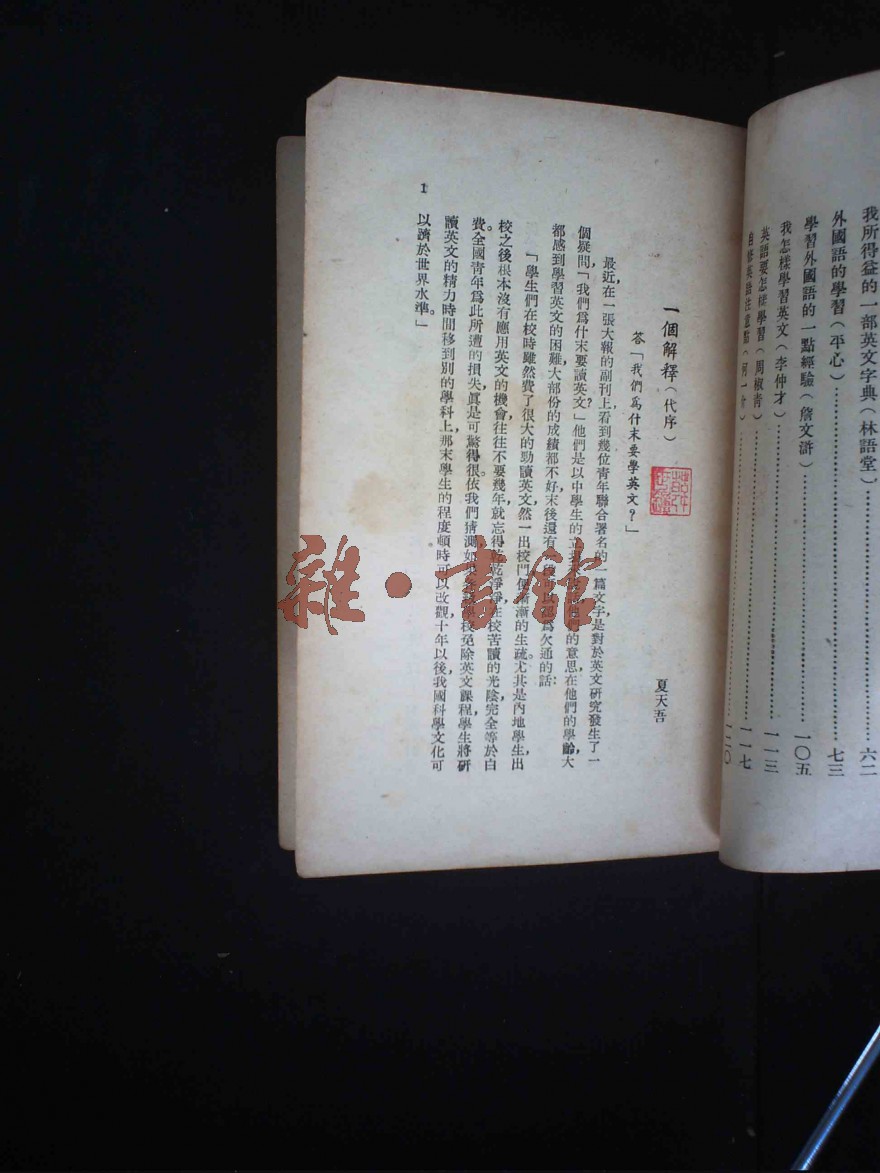 我所得益的一部英文字典(林語堂)……六二
外國語的學習(平心)……七三
學習外國語的一點經驗(詹文滸)……一〇五
我怎樣學習英文(李仲才)……一一三
英語要怎樣學習(周椒青)……一一七
自修英語注意點(何一介)……一二〇
一個解釋(代序)
答「我們爲什末要學英文?」
夏天吾
最近,在一張大報的副刊上,看到幾位青年聯合署名的一篇文字,是對於英文研究發生了一
個疑問「我們爲什末要讀英文?」他們是以中學生的立 的意思,在他們的學齡,大
都感到學習英文的困難,大部份的成績都不好,末後還有 爲欠通的話:
「學生們在校時雖然費了很大的勁讀英文,然一出校門,便漸漸的生疏,尤其是內地學生,出
校之後,根本沒有應用英文的機會,往往不要幾年,就忘得乾乾淨淨,在校苦讀的光陰,完全等於白
費。全國青年爲此所遭的損失,眞是可驚得很。依我們猜測,如 免除英文課程,學生將研
讀英文的精力時間,移到別的學科上,那末學生的程度,頓時可以改觀,十年以後,我國科學文化,可
以濟於世界水準。」
1
雜·書館